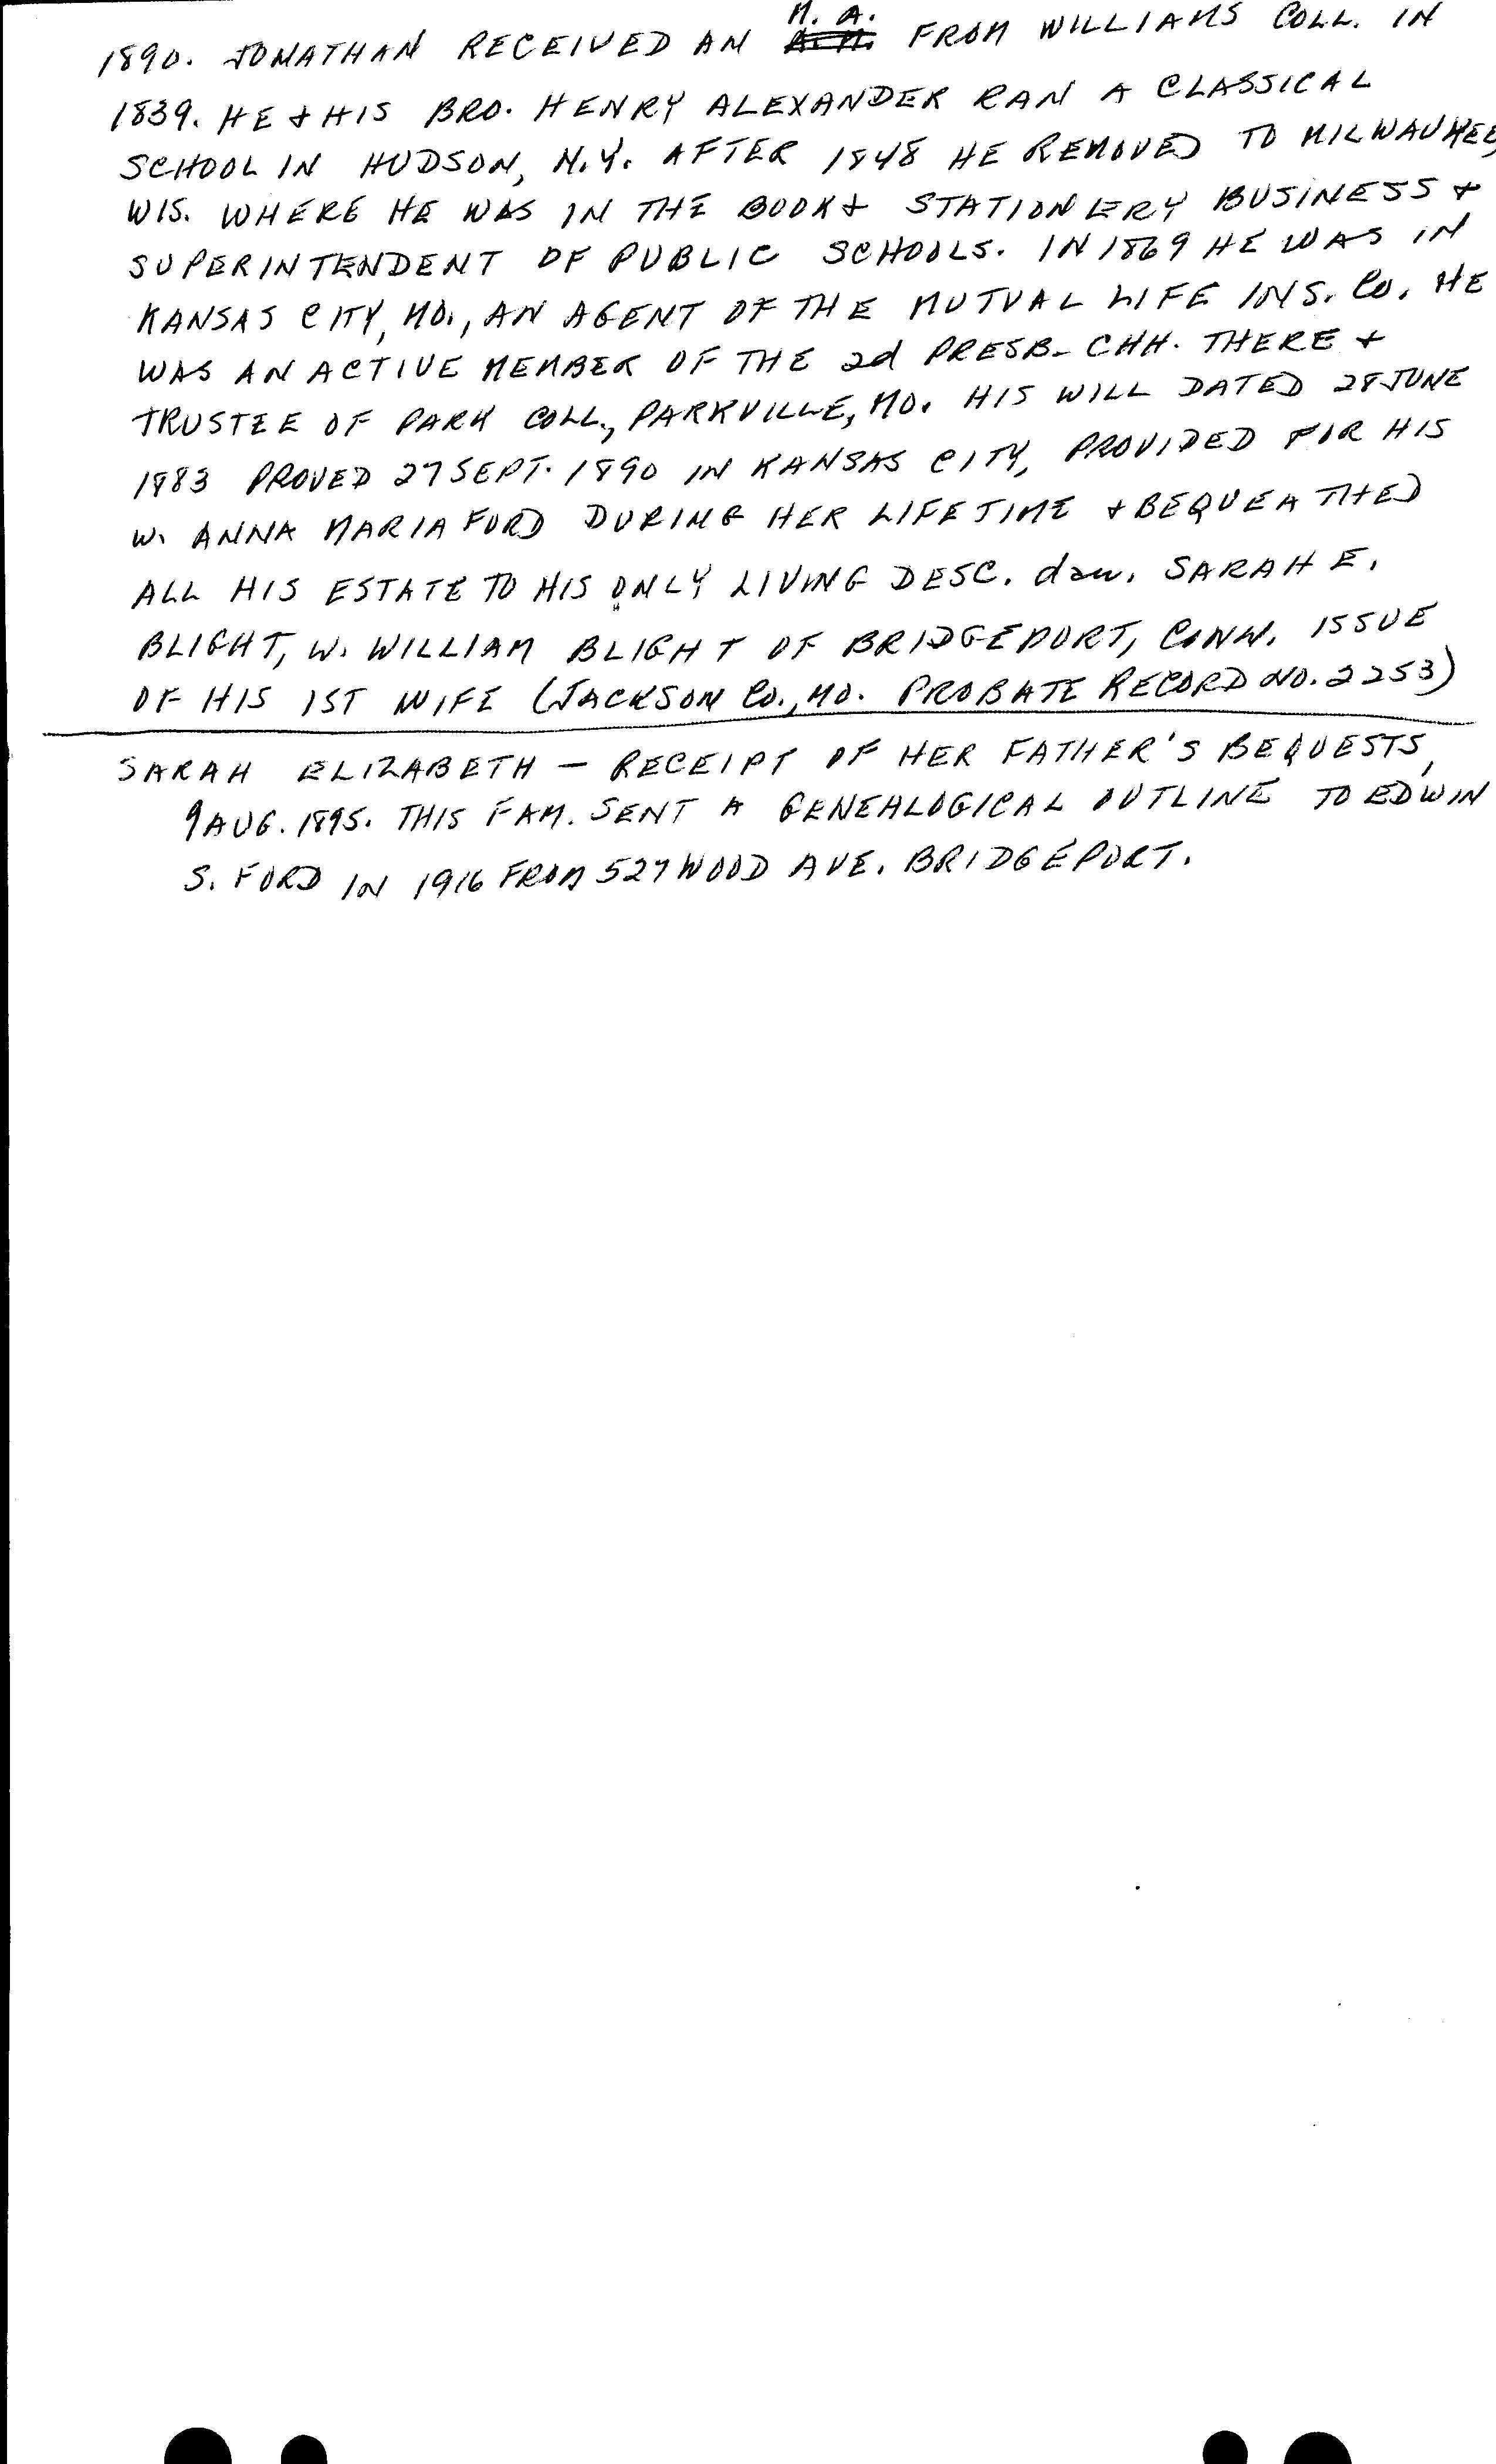 M. A.
1890. JONATHAN RECEIVED AN A. M. FROM WILLIAMS COLL. IN
1839. HE & HIS BRO. HENRY ALEXANDER RAN A CLASSICAL
SCHOOL IN HUDSON, N.Y. AFTER 1848 HE REMOVED TO MILWAUKEE,
WIS. WHERE HE WAS IN THE BOOK & STATIONERY BUSINESS &
SUPERINTENDENT OF PUBLIC SCHOOLS. IN 1869 HE WAS IN
KANSAS CITY, MO., AN AGENT OF THE MUTUAL LIFE INS. CO. HE
WAS AN ACTIVE MEMBER OF THE 2d PRESB. CHH. THERE &
TRUSTEE OF PARK COLL., PARKVILLE, MO. HIS WILL DATED 28 JUNE
1883 PROVED 27 SEPT. 1890 IN KANSAS CITY, PROVIDED FOR HIS
W. ANNA MARIA FORD DURING HER LIFETIME & BEQUEATHED
ALL HIS ESTATE TO HIS ONLY LIVING DESC. dau. SARAH E.
BLIGHT, W. WILLIAM BLIGHT OF BRIDGEPORT, CONN. ISSUE
OF HIS 1ST WIFE (JACKSON CO., MO. PROBATE RECORD NO. 2253)
SARAH ELIZABETH — RECEIPT OF HER FATHER'S BEQUESTS,
9 AUG. 1895. THIS FAM. SENT A GENEALOGICAL OUTLINE TO EDWIN
S. FORD IN 1916 FROM 527 WOOD AVE. BRIDGEPORT.